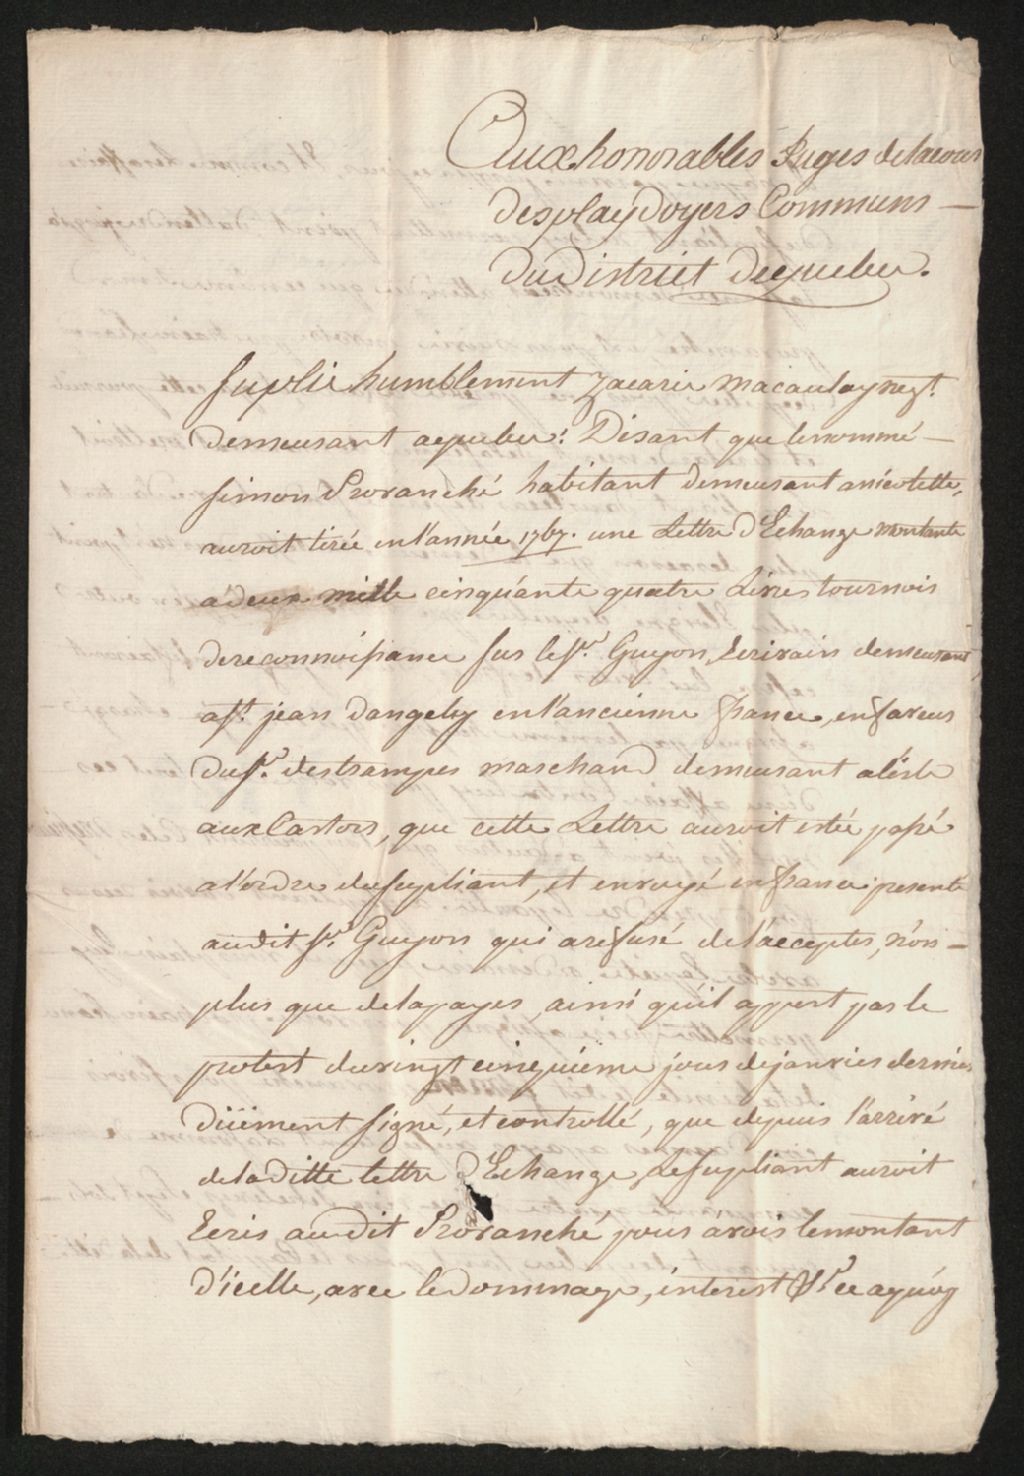 Aux honorables Juges de la cour
des playdoyers Communs —
du District de quebec.
Suplie humblement Zacarie Macaulay negt.
demeurant a quebec: Disant que le nommé —
Simon Provanché habitant demeurant a nicolette,
auroit tirée en l'année 1767. une Lettre d'Echange montante
à deux mille cinquante quatre Livres tournois
de reconnoissance sur le Sr. Guyon, Ecrivain demeurant
a St. jean dangely en l'ancienne france, en faveur
du Sr. destrampes marchand demeurant a l'isle
aux Castors, que cette Lettre auroit estée passé
a l'ordre du supliant, et envoyé en france presenté
audit Sr. Guyon qui a refusé de l'accepter, non —
plus que de la payer, ainsi qu'il appert par le
protest du vingt cinquieme jour de janvier dernier
Düement signé, et controllé, que depuis l'arrivé
de la ditte lettre d'Echange, Le supliant auroit
Ecris audit Provanché pour avoir le montant
d'icelle, avec le dommage, interest &c. ce a quoy